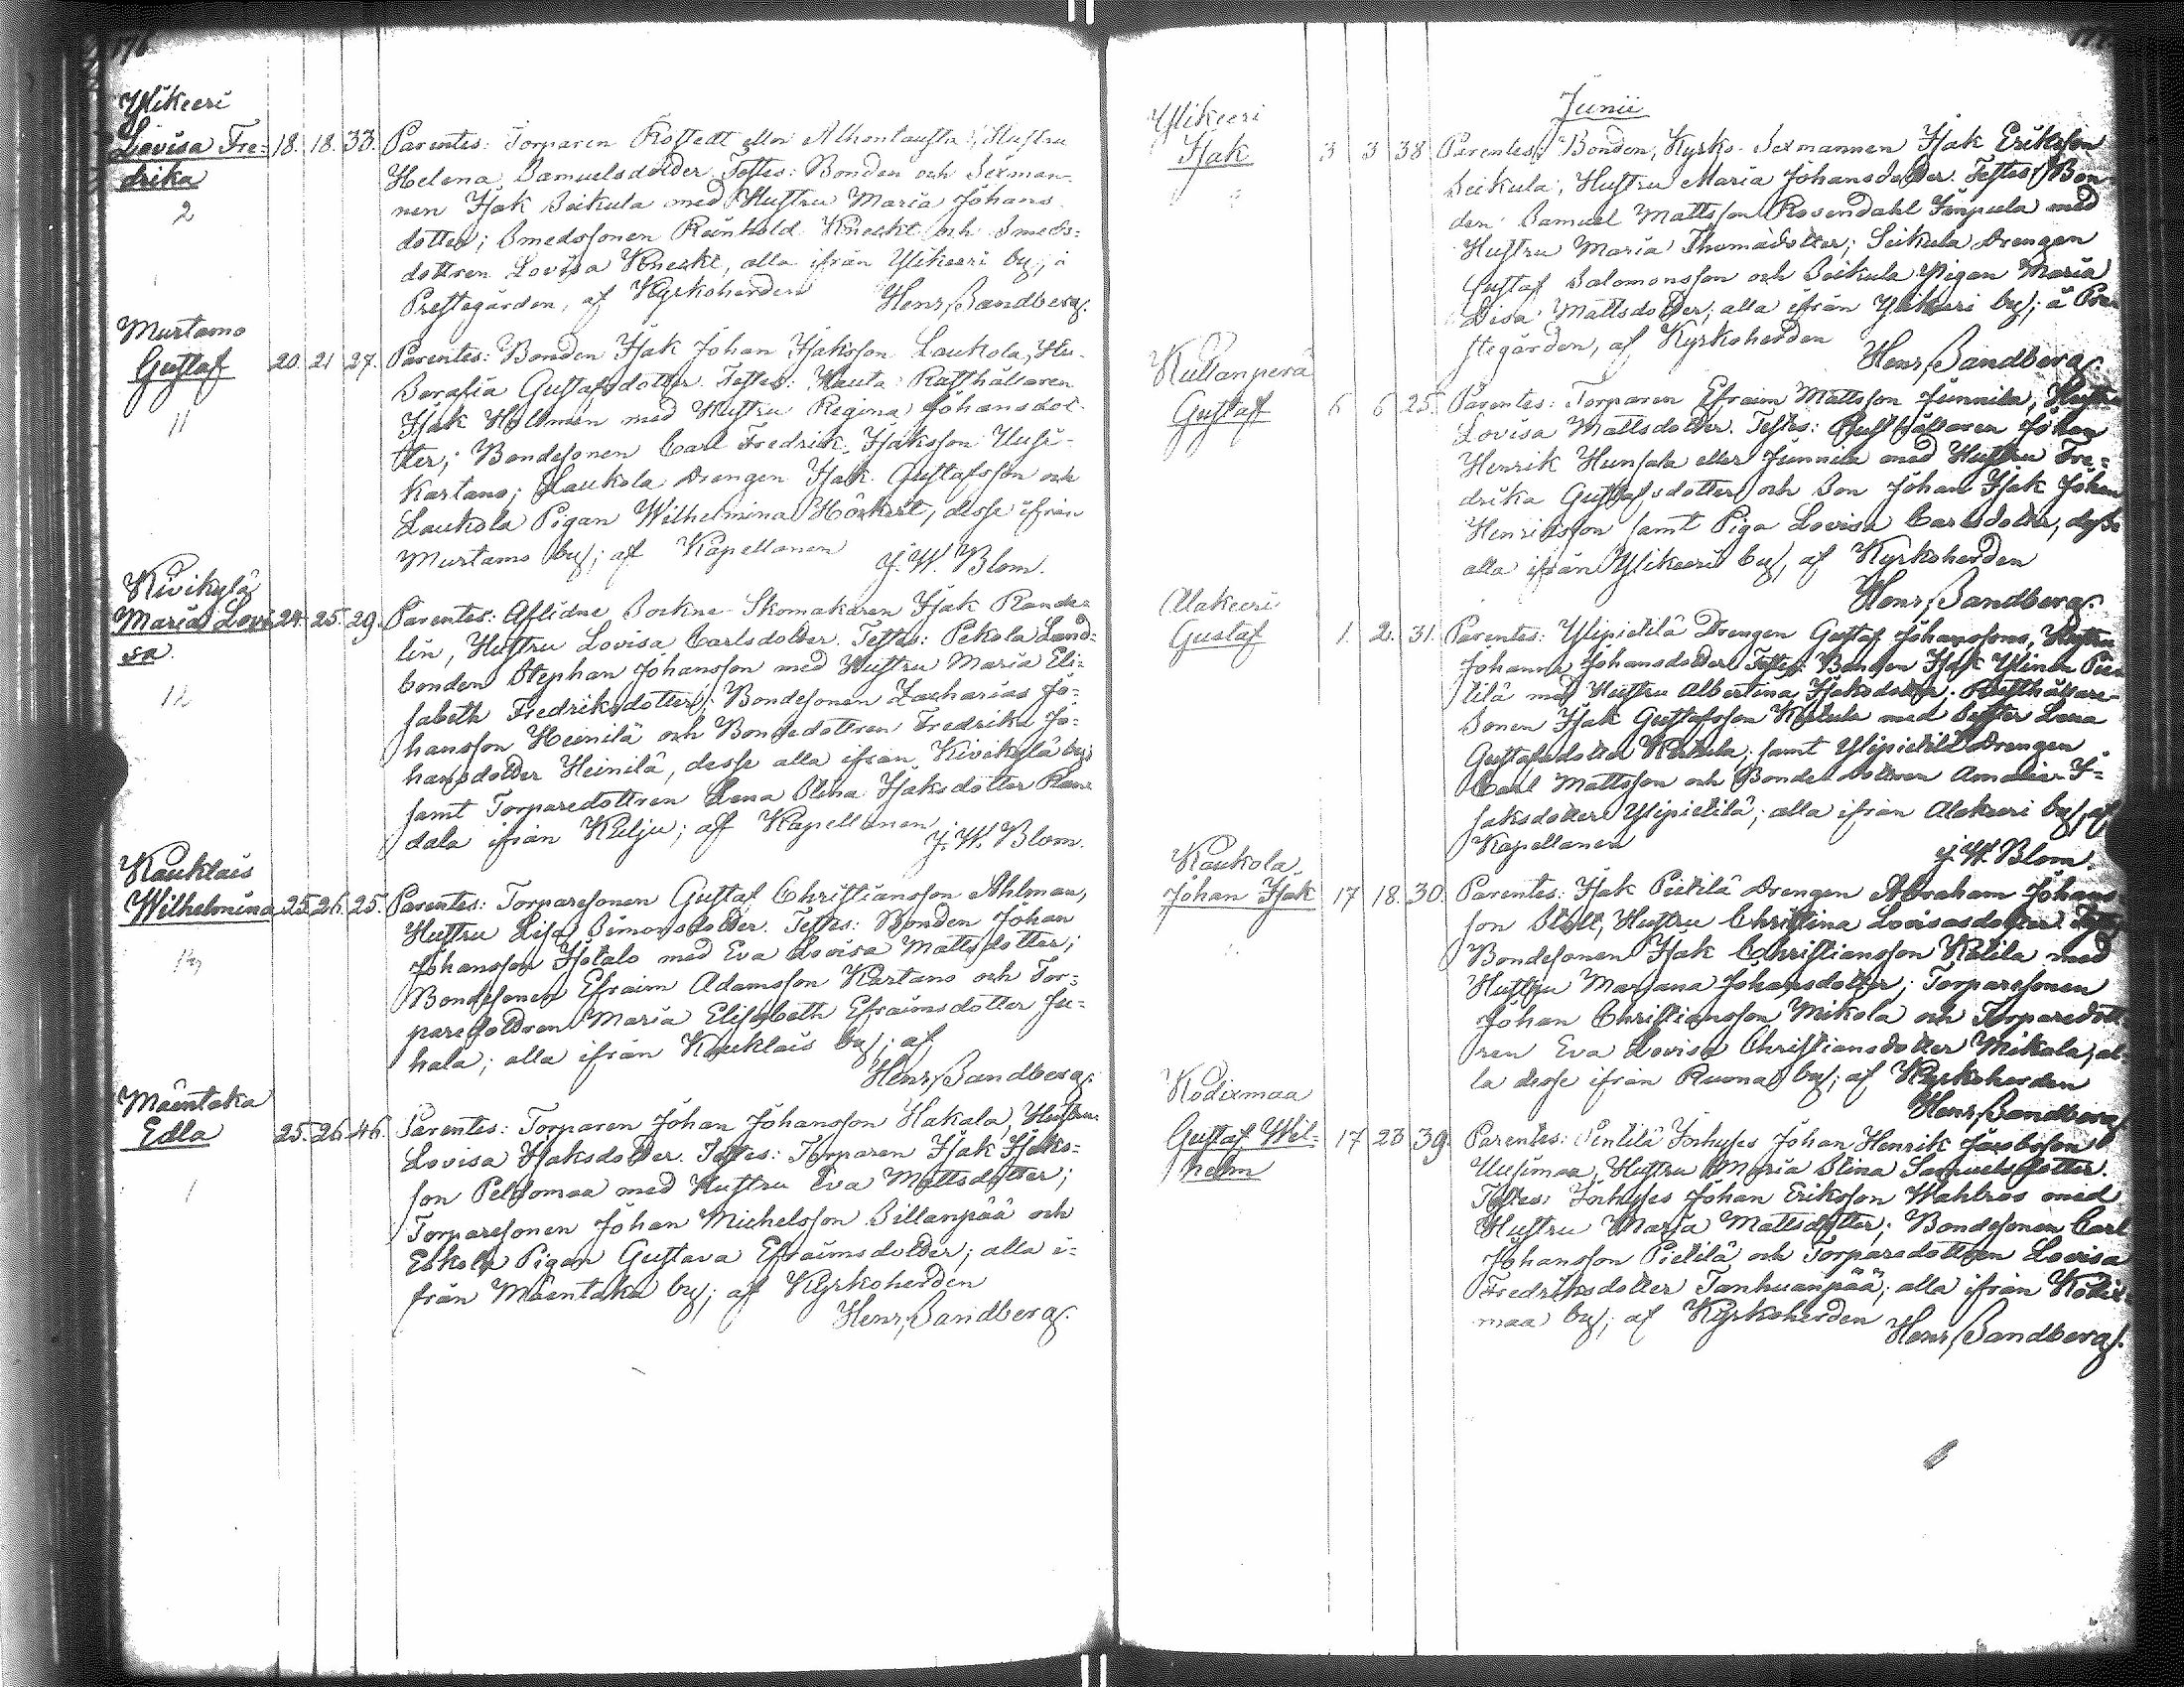 176
Ylikeeri
Lovisa Fre= 18. 18. 33. Parentes: Torparen Rostedt eller Alhontausta, Hustru
drika Helena Samuelsdotter. Testes: Bonden och Sexman-
2 nen Isak Seikula med Hustru Maria Johans
dotter; Smedssonen Reinhold Kneckt och Smeds=
dottren Lovisa Kneckt, alla ifrån Ylikeeri by; å
Prestegården, af Kyrkoherden Henr. Sandberg.
Murtamo
Gustaf 20. 21 27. Parentes: Bonden Isak Johan Isaksson Laukola, Hu.
Serafia Gustafsdotter. Testes: Rusthållaren
11 Isak Holmen med Hustru Regina Johansdot-
ter; Bondesonen Carl Fredrik Isaksson Uusi-
Kartano; Laukola Drengen Isak Gustafsson och
Laukola Pigan Wilhelmina Hörkert, desse ifrån
Murtamo by; af Kapellanen J. W. Blom.
Kivikylä
Maria Lovi 24. 25. 29. Parentes: Aflidne Sockne Skomakaren Isak Rande=
sa. lin, Hustru Lovisa Carlsdotter. Testes: Pekola Land=
12 bonden Stephan Johansson med Hustru Maria Eli=
sabeth Fredriksdotter; Bondesonen Zacharias Jo=
hansson Heinilä och Bondedottren Fredrika Jo=
hansdotter Heinilä, desse alla ifrån Kivikylä by;
samt Torparedottren Lena Stina Isaksdotter Ran=
dala ifrån Kulju; af Kapellanen J. W. Blom.
Kauklais
Wilhelmina 25. 26. 25. Parentes: Torparesonen Gustaf Christiansson Ahlman,
Hustru Lisa Simonsdotter. Testes: Bonden Johan
Johansson Isotalo med Eva Lovisa Mattsdotter;
Bondesonen Efraim Adamsson Kartano och Tor=
paredottren Maria Elisabeth Efraimsdotter Ju=
hala; alla ifrån Kauklais by; af
Henr. Sandberg.
Mäentaka
Edla 25. 26. 46. Parentes: Torparen Johan Johansson Hakala, Hustru
Lovisa Isaksdotter. Testes: Torparen Isak Isaks=
1 son Peldomaa med Hustru Eva Mattsdotter;
Torparesonen Johan Michelsson Sillanpää och
Eskola Pigan Gustava Efraimsdotter; alla i=
från Mäentaka by; af Kyrkoherden
Henr. Sandberg.
Junii
Ylikeeri
Isak 3 3 38 Parentes: Bonden, Kyrko-Sexmannen Isak Eriksson
Seikula, Hustru Maria Johansdotter. Testes: Bon
den Samuel Mattsson Rosendahl med
Hustru Maria Thomadotter; Seikula Drengen
Gustaf Salomonsson och Seikula Pigan Maria
Disa Mattsdotter; alla ifrån Ylikeeri by; å Pre
stegården, af Kyrkoherden
Henr. Sandberg.
Kullanperä
Gustaf 6 6 25. Parentes: Torparen Efraim Mattsson Junnila, Hustru
Lovisa Mattsdotter. Testes: Rusthållaren Johan
Henrik Hunsala eller Junnila med Hustru Fre=
drika Gustafsdotter och Son Johan Isak Johan
Henriksson samt Piga Lovisa Carlsdotter, desse
alla ifrån Ylikeeri by, af Kyrkoherden
Henr. Sandberg.
Alakeeri
Gustaf 1. 2. 31. Parentes: Ylipietilä Drengen Gustaf Johanssons, Hustru
Johanna Johansdotter. Testes: Bonden Isak Ylinen Pie
tilä med Hustru Albertina Isaksdotter; Rusthållare-
Sonen Isak Gustafsson Kertula med Syster Lena
Gustafsdotter Kertula; samt Ylipietilä Drengen
Carl Mattsson och Bondedottren Amalia I=
saksdotter Ylipietilä; alla ifrån Alakeeri by, af
Kapellanen J. W. Blom.
Kaukola
Johan Isak 17 18. 30. Parentes: Isak Pietilä Drengen Abraham Johans
son Stolt, Hustru Christina Lovisasdotter. Testes
Bondesonen Isak Christiansson Katila med
Hustru Mariana Johansdotter; Torparesonen
Johan Christiansson Mikola och Torparedott
ren Eva Lovisa Christiansdotter Mikola; al
la desse ifrån Ruona by; af Kyrkoherden
Henr. Sandberg
Kodixmaa
Gustaf Wil= 17 23 39. Parentes: Pentilä Inhyses Johan Henrik Jacobsson
helm Uusimaa, Hustru Maria Stina Samuelsdotter.
Testes: Inhyses Johan Eriksson Wahlros med
Hustru Maria Mattsdotter; Bondesonen Carl
Johansson Pietilä och Torparedottren Lovisa
Fredriksdotter Tanhuanpää; alla ifrån Kodix
maa by; af Kyrkoherden Henr. Sandberg.